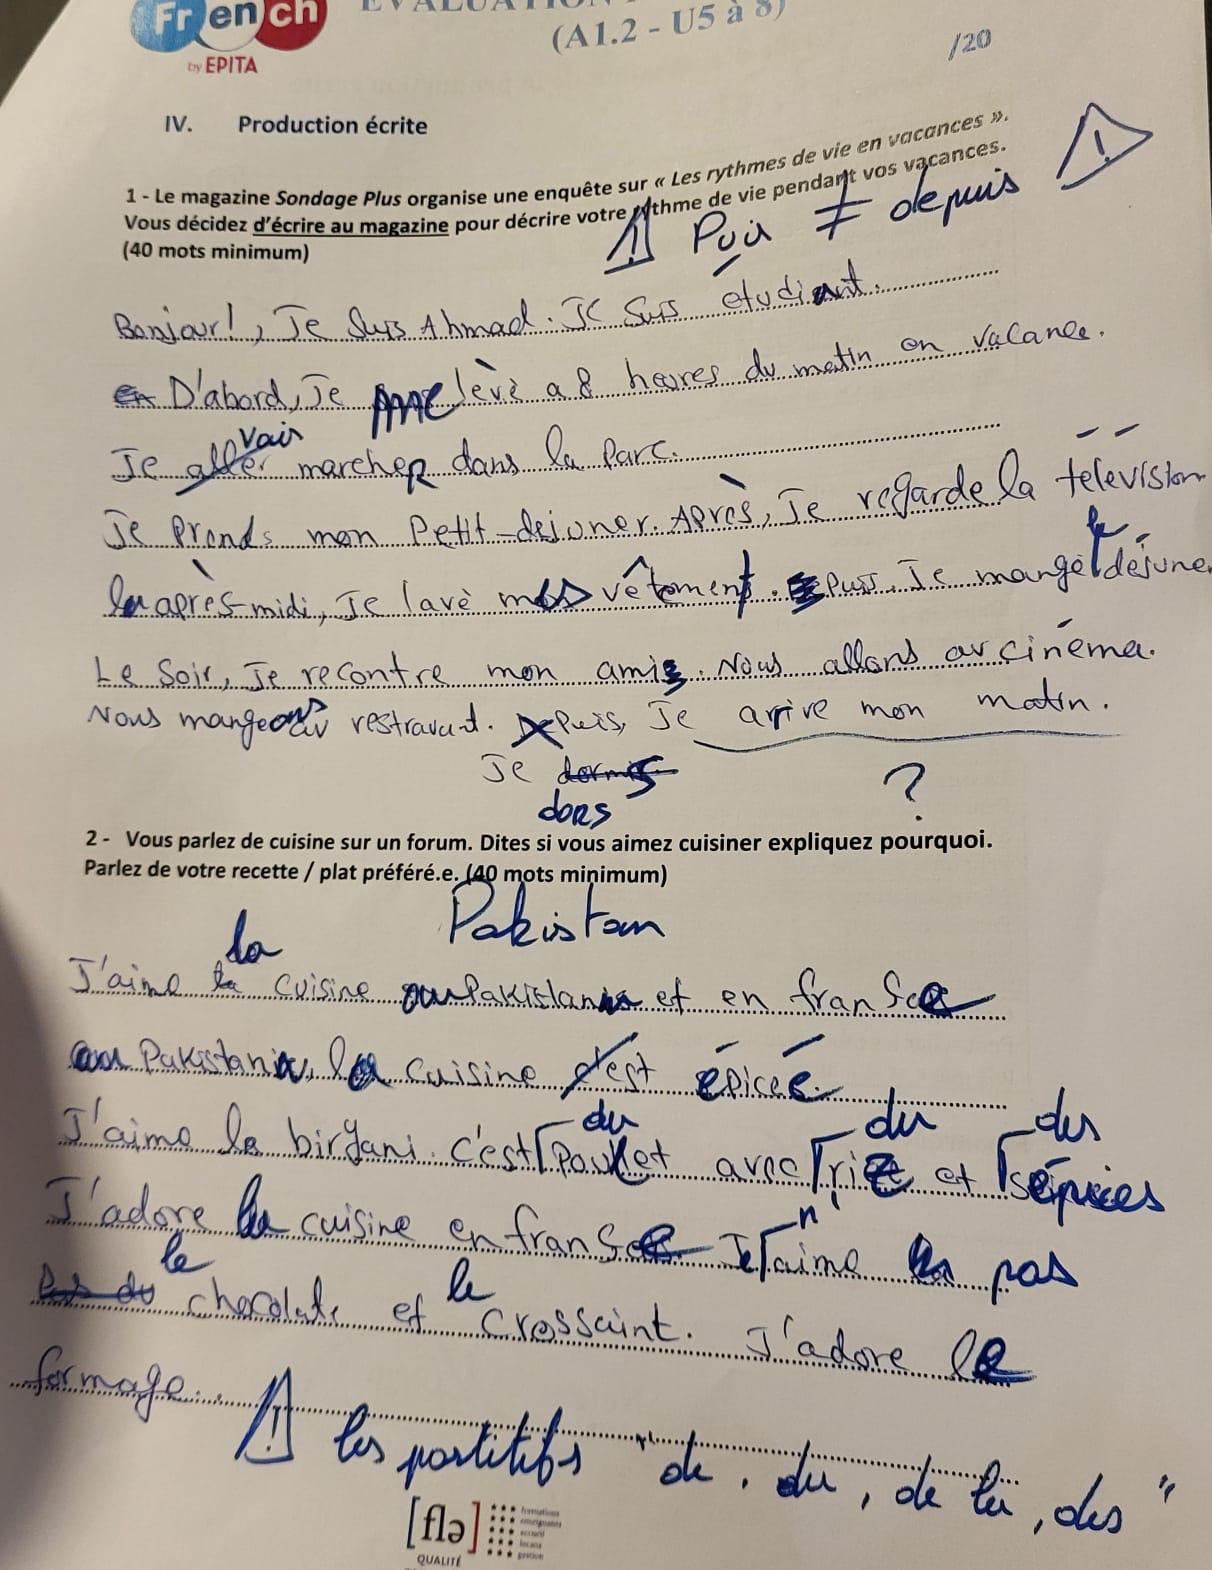 French
by EPITA
(A1.2 - U5 à 8)
/20
IV. Production écrite
1 - Le magazine Sondage Plus organise une enquête sur « Les rythmes de vie en vacances ».
Vous décidez d'écrire au magazine pour décrire votre rythme de vie pendant vos vacances.
(40 mots minimum)
! Puis ≠ depuis !
Bonjour!, Je Suis Ahmad. Je Suis étudiant.
D'abord, Je me lève a 8 heures du matin en vacance.
vais
Je aller marcher dans la Parc.
Je Prends mon Petit-dejuner. Après, Je regarde la télévision
après-midi, Je lavè mes vêtement. Puis, Je mange le déjuner
Le Soir, Je recontre mon amis. Nous allons au cinéma.
Nous mangeons au restraunt. Puis, Je arrive mon matin.
Je dormis ?
dors
2 - Vous parlez de cuisine sur un forum. Dites si vous aimez cuisiner expliquez pourquoi.
Parlez de votre recette / plat préféré.e. (40 mots minimum)
la Pakistan
J'aime la cuisine au Pakistan et en france
au Pakistan, la cuisine c'est épicée.
du du des
J'aime le biryani. C'est Poulet avec riz et épices
J'adore la cuisine en france Je n'aime pas
le le
chocolate et crossaint. J'adore le
formage.
! les partitifs "de, du, de la, des"
[flə]
QUALITÉ